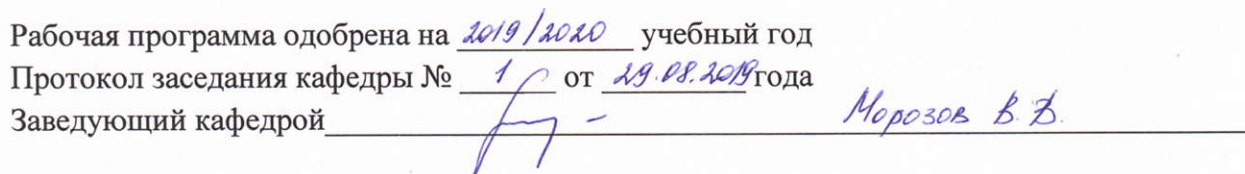 Рабочая программа одобрена на 2019/2020 учебный год
Протокол заседания кафедры № 1 от 29.08.2019 года
Заведующий кафедрой Морозов В.Д.